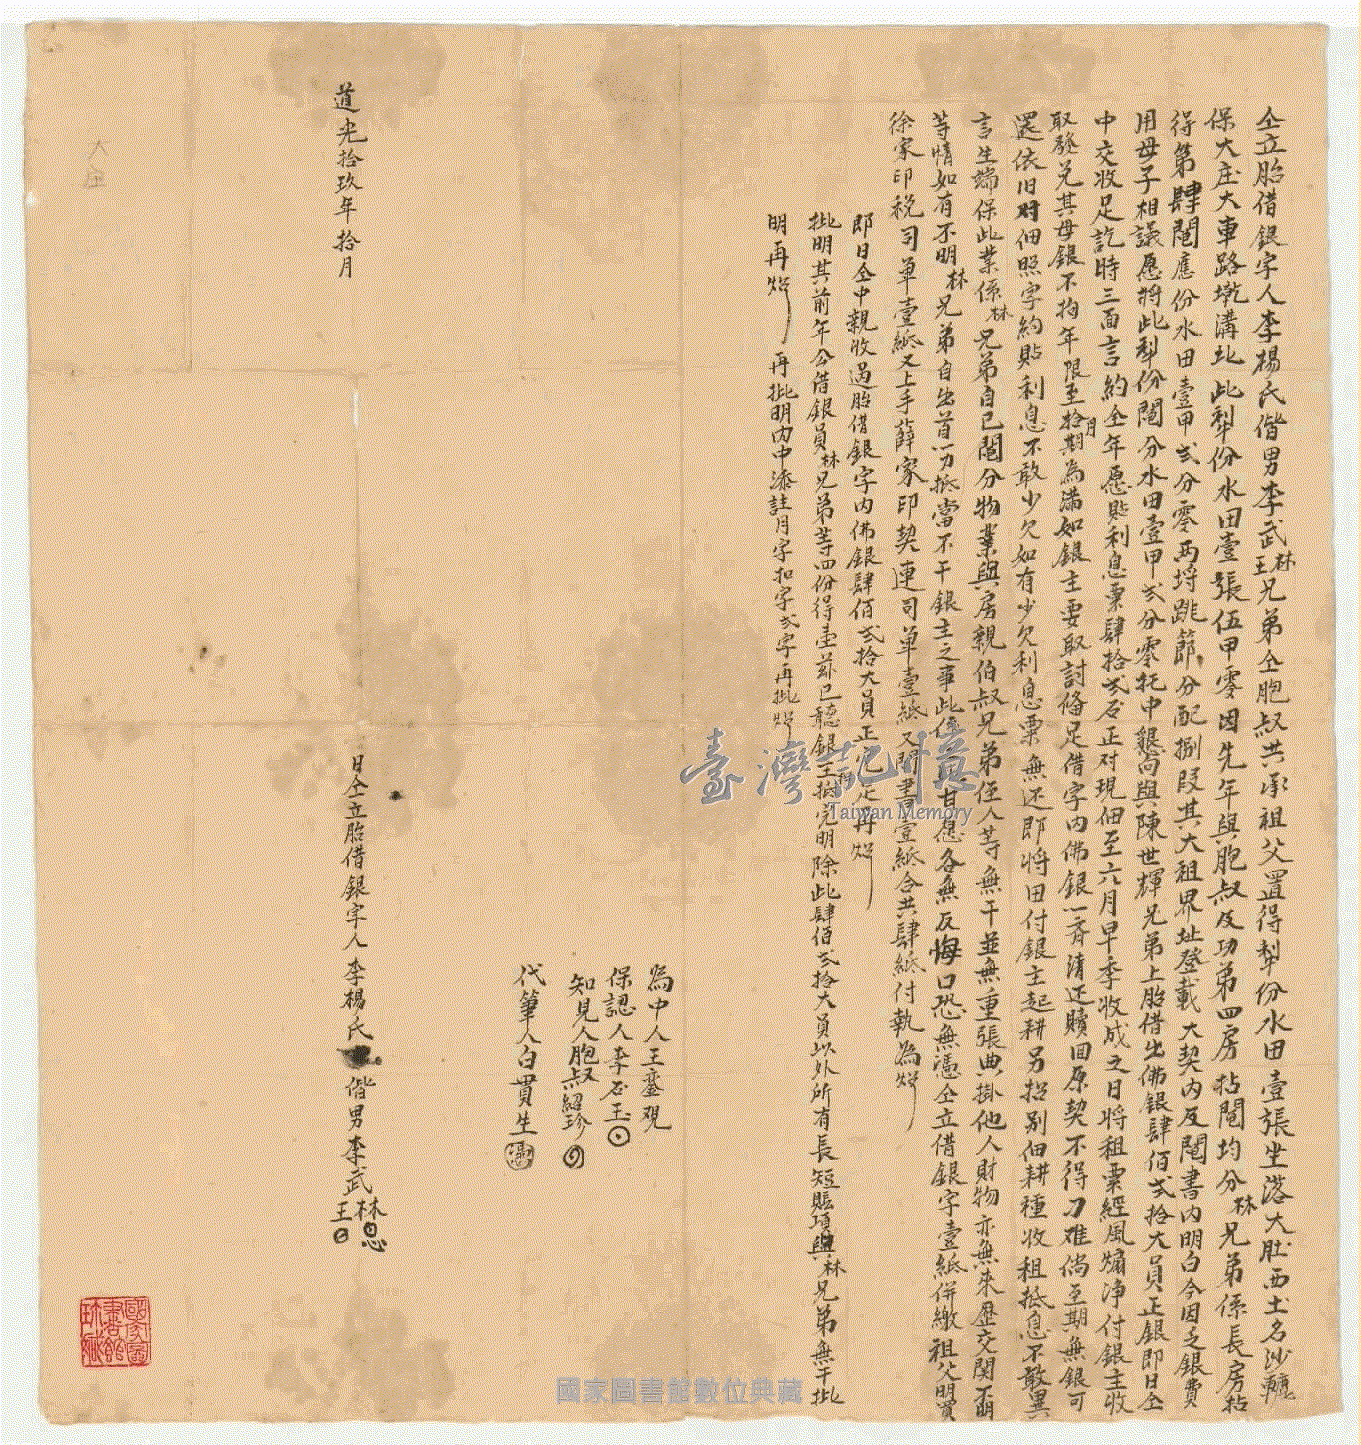 仝立胎借銀字人李楊氏偕男李武林王兄弟仝胞叔共承祖父置得犁份水田壹張坐落大肚西土名沙轆
保大庄大車路墘溝北此犁份水田壹張伍甲零因先年與胞叔及功弟四房拈鬮均分林兄弟係長房拈
得第肆鬮應份水田壹甲弍分零兩埒跳節分配捌段其大租界址登載大契內及鬮書內明白今因乏銀費
用母子相議愿將此犁份鬮分水田壹甲弍分零托中懇向與陳世輝兄弟上胎借出佛銀肆佰弍拾大員正銀即日仝
中交收足訖時三面言約仝年愿貼利息粟肆拾弍石正对現佃至六月早季收成之日將租粟經風煽净付銀主收
取發兑其母銀不拘年限至拾月期為滿如銀主要取討俻足借字內佛銀一齊清还贖回原契不得刁难倘至期無銀可
还依旧对佃照字約貼利息不敢少欠如有少欠利息粟無还即將田付銀主起耕另招別佃耕種收租抵息不敢異
言生端保此業係林兄弟自己鬮分物業與房親伯叔兄弟侄人等無干並無重張典掛他人財物亦無來歷交関不明
等情如有不明林兄弟自出首一力抵當不干銀主之事此係甘愿各無反悔口恐無憑仝立借銀字壹紙併繳祖父明買
徐家印稅司单壹紙又上手薛家印契連司单壹紙又鬮書壹紙合共肆紙付執為炤
即日仝中親收過胎借銀字內佛銀肆佰弍拾大員正完足再炤
批明其前年公借銀員林兄弟等四份得壹兹已聽銀主扣完明除此肆佰弍拾大員以外所有長短賬項與林兄弟無干批
明再炤 再批明內中添註月字扣字弍字再批炤
為中人王鑾观
保認人李石玉
知見人胞叔紹珍
代筆人白貫生
道光拾玖年拾月
日仝立胎借銀字人李楊氏 偕男李武林王
臺灣記憶
Taiwan Memory
國家圖書館數位典藏
國家圖書館珍藏